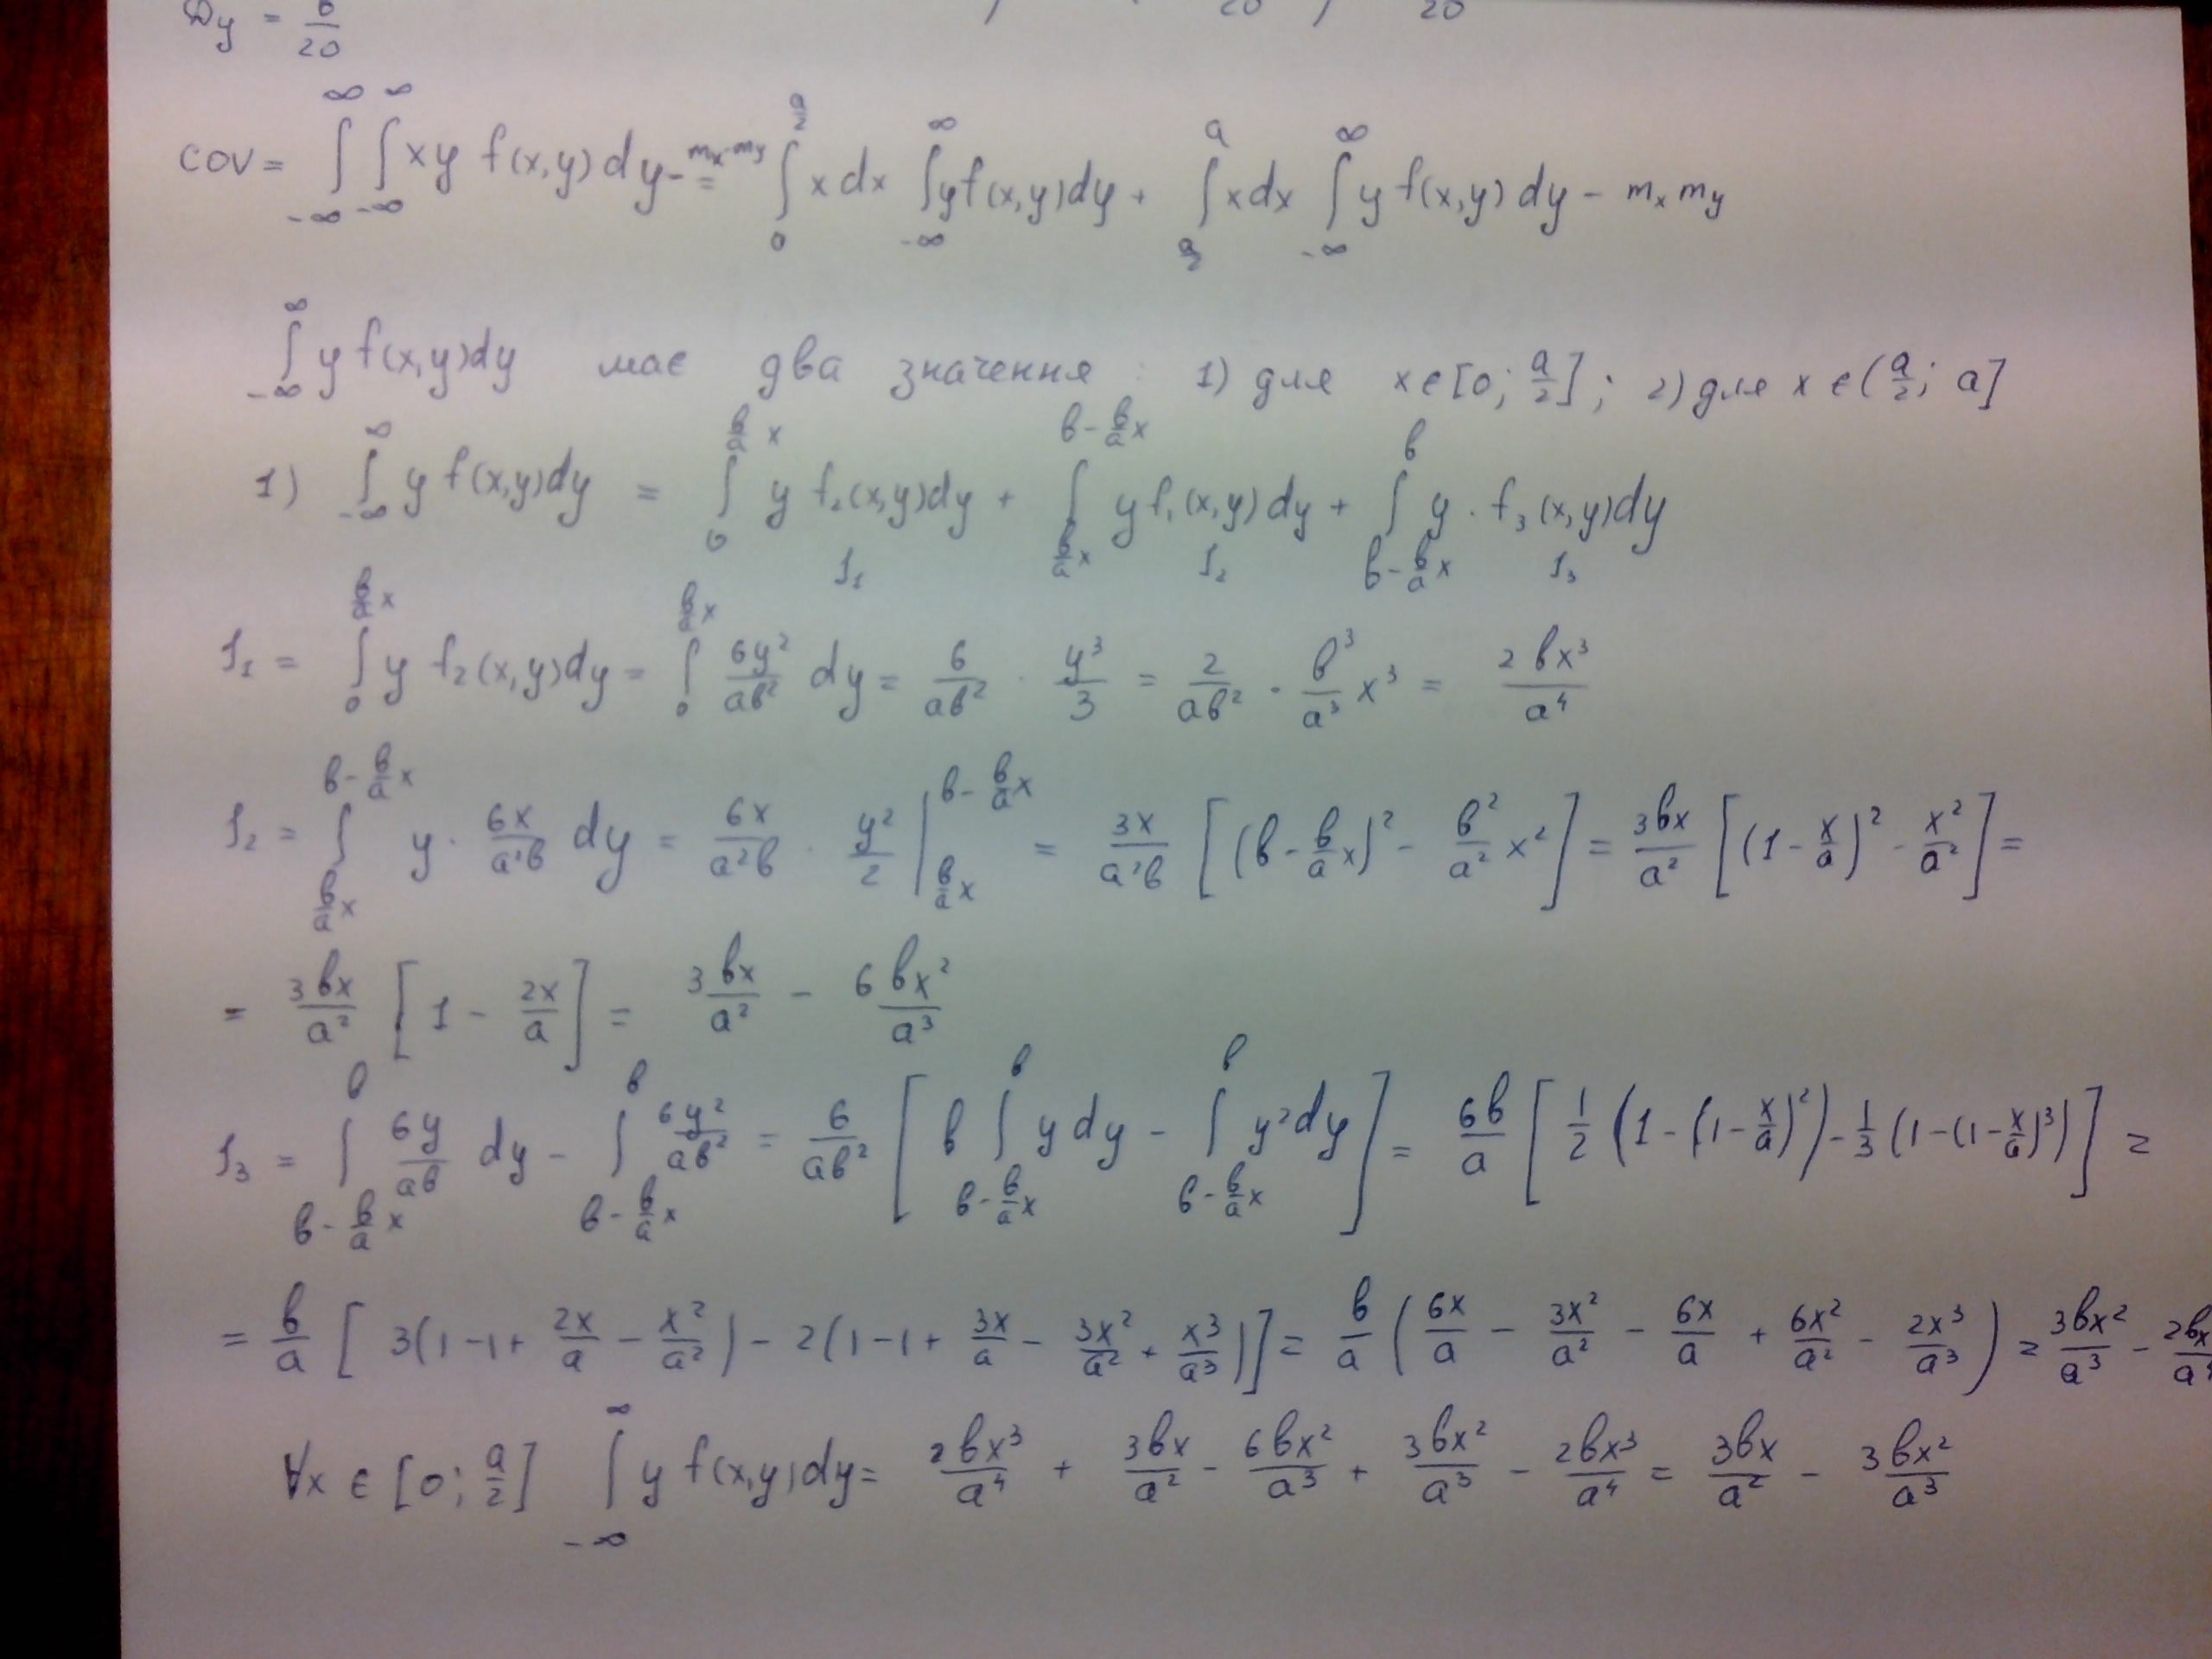 Dy = в/20 20 ) 20
cov = ∫_{-∞}^{∞} ∫_{-∞}^{∞} xy f(x,y) dy - mx·my = ∫_0^{a/2} x dx ∫_{-∞}^{∞} y f(x,y) dy + ∫_{a/2}^{a} x dx ∫_{-∞}^{∞} y f(x,y) dy - mx my
∫_{-∞}^{∞} y f(x,y) dy має два значення : 1) для x ∈ [0; a/2]; 2) для x ∈ (a/2; a]
1) ∫_{-∞}^{∞} y f(x,y) dy = ∫_0^{в/a x} y f₂(x,y) dy + ∫_{в/a x}^{в - в/a x} y f₁(x,y) dy + ∫_{в - в/a x}^{в} y · f₃(x,y) dy
I₁ I₂ I₃
I₁ = ∫_0^{в/a x} y f₂(x,y) dy = ∫_0^{в/a x} 6y²/aв² dy = 6/aв² · y³/3 = 2/aв² · в³/a³ x³ = 2вx³/a⁴
I₂ = ∫_{в/a x}^{в - в/a x} y · 6x/a²в dy = 6x/a²в · y²/2 |_{в/a x}^{в - в/a x} = 3x/a²в [(в - в/a x)² - в²/a² x²] = 3вx/a² [(1 - x/a)² - x²/a²] =
= 3вx/a² [1 - 2x/a] = 3вx/a² - 6вx²/a³
I₃ = ∫_{в - в/a x}^{в} 6y/aв dy - ∫_{в - в/a x}^{в} 6y²/aв² = 6/aв² [в ∫_{в - в/a x}^{в} y dy - ∫_{в - в/a x}^{в} y² dy] = 6в/a [1/2 (1 - (1 - x/a)²) - 1/3 (1 - (1 - x/a)³)] =
= в/a [3(1 - 1 + 2x/a - x²/a²) - 2(1 - 1 + 3x/a - 3x²/a² + x³/a³)] = в/a (6x/a - 3x²/a² - 6x/a + 6x²/a² - 2x³/a³) = 3вx²/a³ - 2вx/a⁴
∀x ∈ [0; a/2] ∫_{-∞}^{∞} y f(x,y) dy = 2вx³/a⁴ + 3вx/a² - 6вx²/a³ + 3вx²/a³ - 2вx³/a⁴ = 3вx/a² - 3вx²/a³